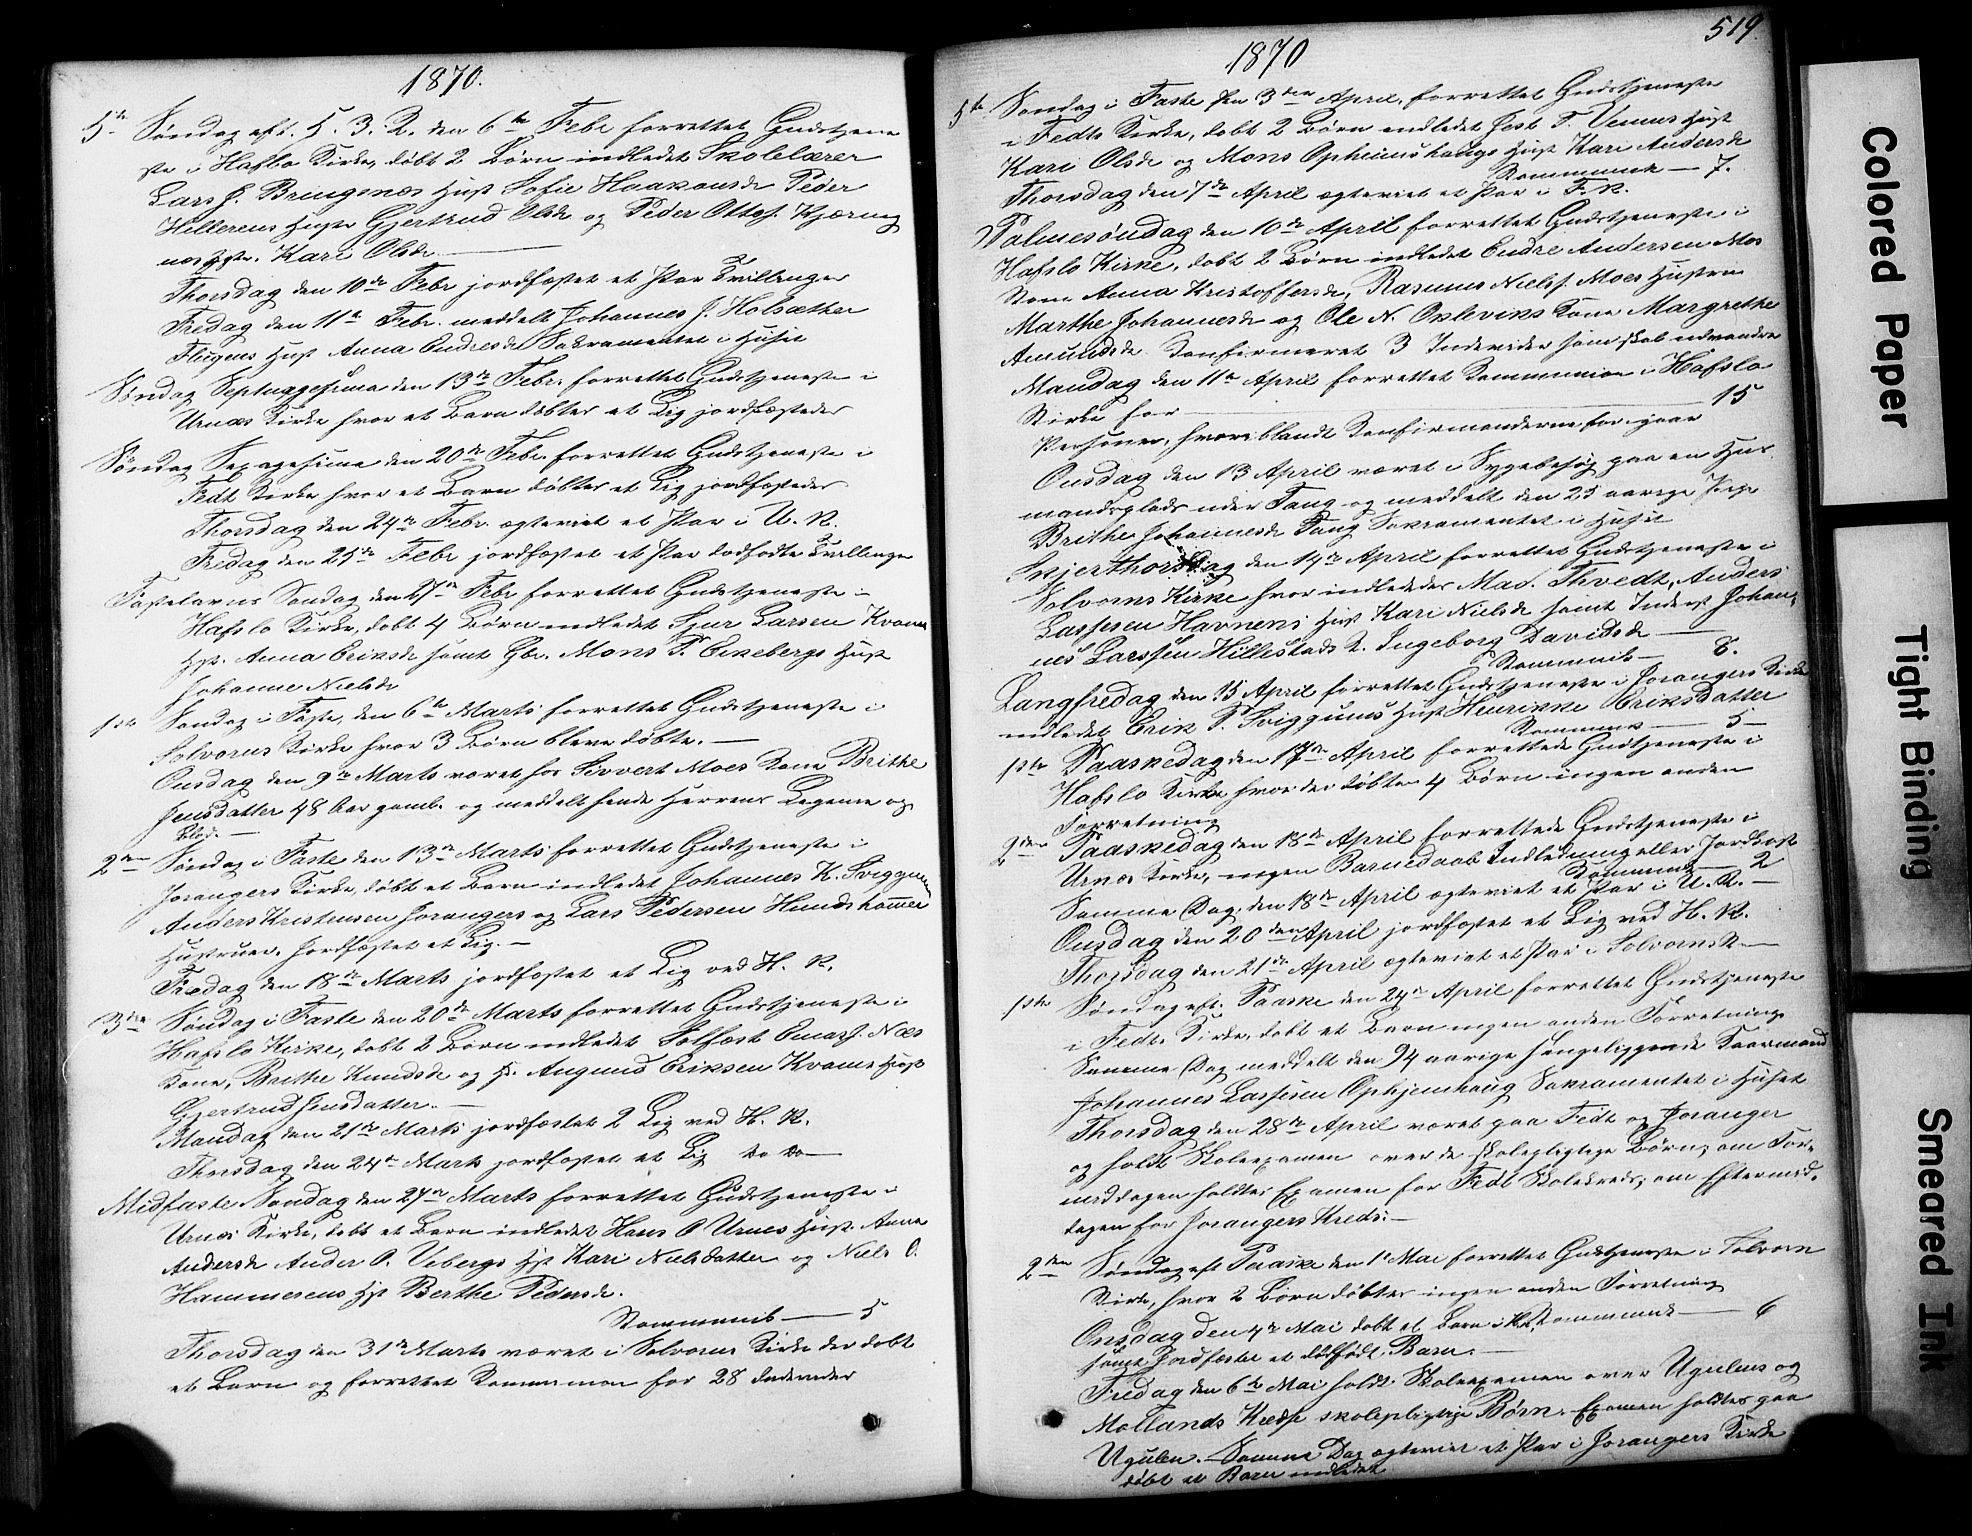 1870.
5te Søndag eft. H. 3. K. den 6te Febr forrettet Gudstjene
ste i Hafslo Kirke, døbt 2 Børn indledet Skolelærer
Lars J. Bringenæs Hust Sofie Haakonsdr Peder
Hillerens Hustr Gjertrud Olsdr og Peder Ottos. Kjæring
næs Hstr. Kari Olsdr.
Thorsdag den 10de Febr jordfæstet et Par Tvillinger
Fredag den 11te Febr. meddelt Johannes J. Holsæther
Hust Anna Endresdr Sakramentet i Huset
Søndag Septuagesima den 13de Febr. forrettet Gudstjeneste i
Urnæs Kirke hvor et Barn døbtes et Lig jordfæstedes
Søndag Sexagesima den 20de Febr. forrettet Gudstjeneste i
Fedt Kirke hvor et Barn døbtes et Lig jordfæstedes
Thorsdag den 24de Febr. ægteviet et Par i U. K.
Fredag den 25de Febr jordfæstet et Par dødfødte Tvillinger
Fastelavns Søndag den 27de Febr forrettet Gudstjeneste i
Hafslo Kirke, døbt 4 Børn indledet Sjur Larsen Kvams
Hst. Anna Eriksdr samt Gbr. Mons P. Ekebergs Hust
Johanne Nielsdr
1ste Søndag i Faste, den 6te Marts forrettet Gudstjeneste i
Solvorns Kirke hvor 3 Børn bleve døbte. —
Onsdag den 9de Marts været hos Sivvert Moes Kone Brithe
Jensdatter 48 Aar gaml. og meddelt hende Herrens Legeme og
Blod. —
2den Søndag i Faste den 13de Marts forrettet Gudstjeneste i
Jorangers Kirke, døbt et Barn indledet Johannes K. Sviggum
Anders Kristensen Jorangers og Lars Pedersen Hundshamer
Hustruer. Jordfæstet et Lig. —
Fredag den 18de Marts jordfæstet et Lig ved H. K.
3die Søndag i Faste den 20de Marts forrettet Gudstjeneste i
Hafslo Kirke, døbt 2 Børn indledet Solfæst Næs
Kone, Brithe Knudsdr og Augund Eriksen Kvams Hust
Gjertrud Jensdatter. —
Mandag den 21de Marts jordfæstet 2 Lig ved H. K.
Thorsdag den 24de Marts jordfæstet et Lig Do Do —
Midfaste Søndag den 27de Marts forrettet Gudstjeneste i
Urnæs Kirke, døbt et Barn indledet Hans O Urnes Hust. Anna
Andersdr Ander O. Vebergs Hst Kari Nielsdatter og Niels O.
Hammerens Hst Berthe Pedersdr.
Kommunic — 5
Thorsdag den 31te Marts været i Solvorns Kirke der døbt
et Barn og forrettet Kommunion for 28 Individer
519.
1870
5te Søndag i Faste den 3die April, forrettet Gudstjeneste
i Fedts Kirke, døbt 2 Børn indledet T Venus Hust
Kari Olsdr og Mons Opheimshaugs Hust Kari Andersdr
Kommunik — 7.
Thorsdag den 7de April ægteviet et Par i F. K.
Palmesøndag den 10de April forrettet Gudstjeneste i
Hafslo Kirke, døbt 2 Børn indledet Endre Andersen Moe
Kone Anna Kristoffersdr, Rasmus Nielss. Moes Hustru
Marthe Johannesdr og Ole N. Oklevins Kone Margrethe
Amundsdr Konfirmeret 3 Individer som skal udvandre
Mandag den 11te April forrettet Kommunion i Hafslo
Kirke for — 15
Personer, hvoriblandt Konfirmanderne fra igaar
Onsdag den 13 April været i Sygebesøg paa en Hus
mandsplads under Tang og meddelt den 23 aarige Pige
Brithe Johannesdr Tang Sakramentet i Huset
Skjerthorsdag den 14de April forrettet Gudstjeneste i
Solvorns Kirke hvor indledes Mad. Thvedt, Anders
Lassesen Havnens Hust Kari Nielsdr samt Inderst Johan,
nes Larssen Hillestads K. Ingeborg Davidsdr —
Kommunik — 8.
Langfredag den 15 April forrettet Gudstjeneste i Jorangers Kirke
indledet Erik P. Sviggums Hust Henrikke Eriksdatter
Kommunik — 5 —
1ste Paaskedag den 17de April forrettede Gudtjeneste i
Hafslo Kirke hvor der døbtes 4 Børn ingen anden
Forretning
2den Paaskedag den 18de April forrettede Gudstjeneste i
Urnæs Kirke, ingen Barnedaab Indledning eller Jordfæst
Kommunik — 2
Samme Dag. den 18de April ægteviet et Par i U. K. —
Onsdag den 20den April jordfæstet et Lig ved H. K.
Thorsdag den 21de April ægteviet et Par i Solvorns K —
1ste Søndag eft. Paaske den 24de April forrettet Gudstjeneste
i Fedts Kirke, døbt et Barn ingen anden Forretning
Samme Dag meddelt den 94 aarige sengeliggende Kaarmand
Johannes Lassesen Ophjemhaug Sakramentet i Huset
Thorsdag den 28de April været paa Fedt og Joranger
og holdt Skoleexamen over de skolepligtige Børn; om For-
middagen holdtes Examen for Fedt Skolekreds; om Eftermid-
dagen for Jorangers Kreds. —
2den Søndag eft Paaske den 1e Mai forrettet Gudstjeneste i Solvorn
Kirke, hvor 2 Børn døbtes ingen anden Forretning
Kommunik — 6
Onsdag den 4de Mai døbt et Barn i H.K.
samt Jordfæstet et dødfødt Barn. —
Fredag den 6te Mai holdt Skoleexamen over Ugulens og
Mollands Kredse skolepligtige Børn. Examen holdtes paa
Ugulen. Samme Dag ægteviet et Par i Jorangers Kirke
døbt et Barn indledet
Colored Paper
Tight Binding
Smeared Ink